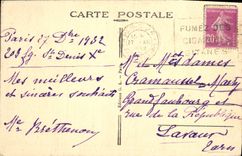 CARTE POSTALE
Paris 27 Dbre 1932
208 fg St Denis Xe
Mes meilleurs
et sincères souhaits
Mr
FUMEZ LES
CIGA
M. et Mmes Dames
Cramaussel-Marty
Grand faubourg et
rue de la République
Lavaur
Tarn